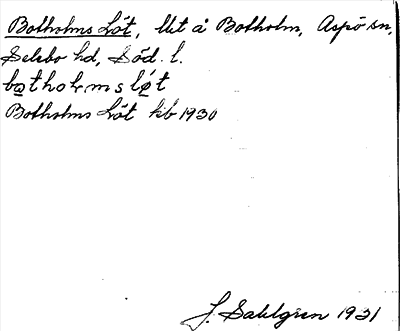 Botholms Löt, lht å Botholm, Aspö sn,
Selebo hd, Söd. l.
botholmsløt
Botholms Löt kb 1930
J. Sahlgren 1931